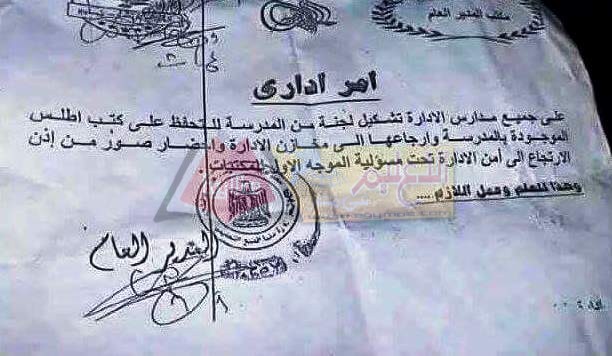 مكتب المدير العام
امر ادارى
على جميع مدارس الادارة تشكيل لجنة من المدرسة للتحفظ على كتب اطلس
الموجودة بالمدرسة وارجاعها الى مخازن الادارة واحضار صور من إذن
الارتجاع الى أمن الادارة تحت مسؤلية الموجه الاول للمكتبات .
وهذا للعلم وعمل اللازم ....
المدير العام